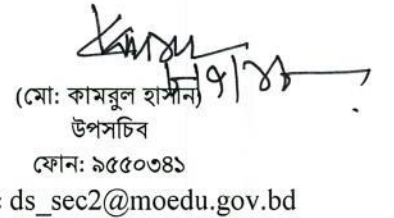 (মো: কামরুল হাসান)
উপসচিব
ফোন: ৯৫৫০৩৪১
: ds_sec2@moedu.gov.bd